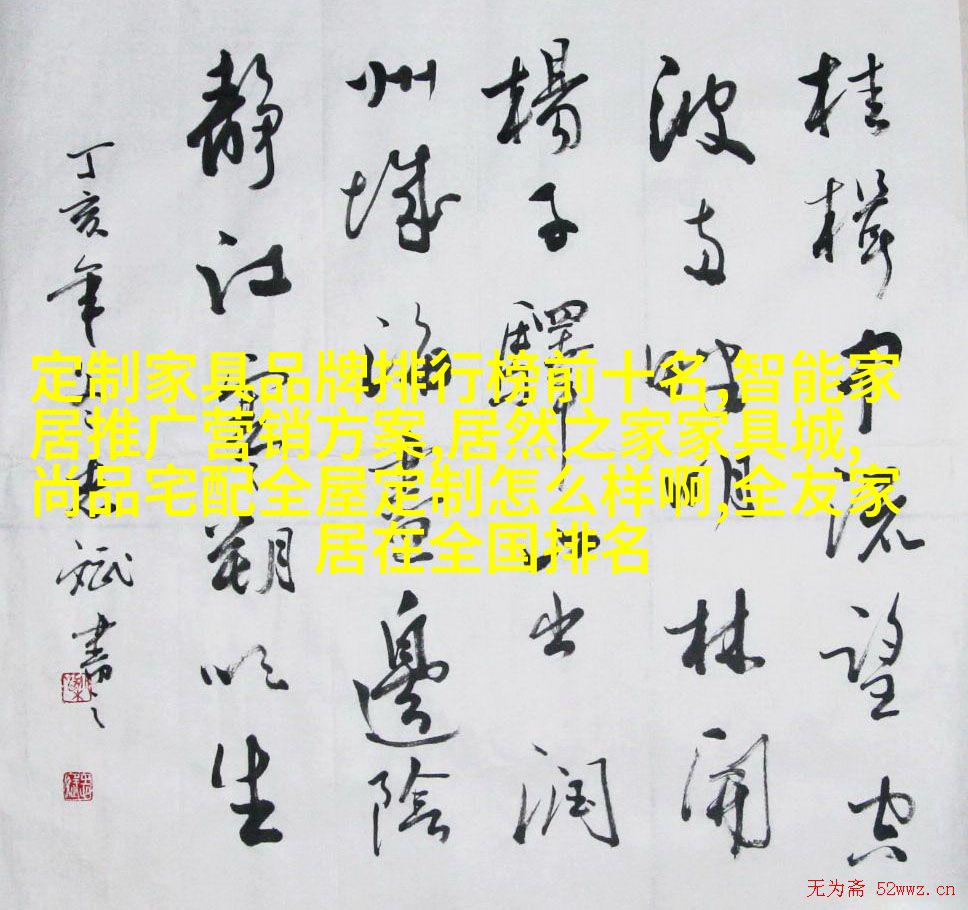 桂楫中流望空
波两畔明林開
楊子驛山出润
州城海盡邊陰
静江寒朔吹生
丁亥年斌書
定制家具品牌排行榜前十名,智能家
居推广营销方案,居然之家家具城,
尚品宅配全屋定制怎么样啊,全友家
居在全国排名
无为斋 52wwz.cn